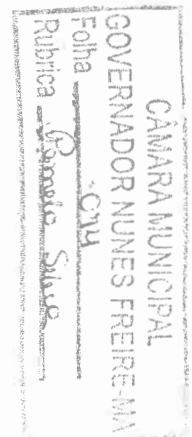 CÂMARA MUNICIPAL
GOVERNADOR NUNES FREIRE-MA
Folha 014
Rubrica